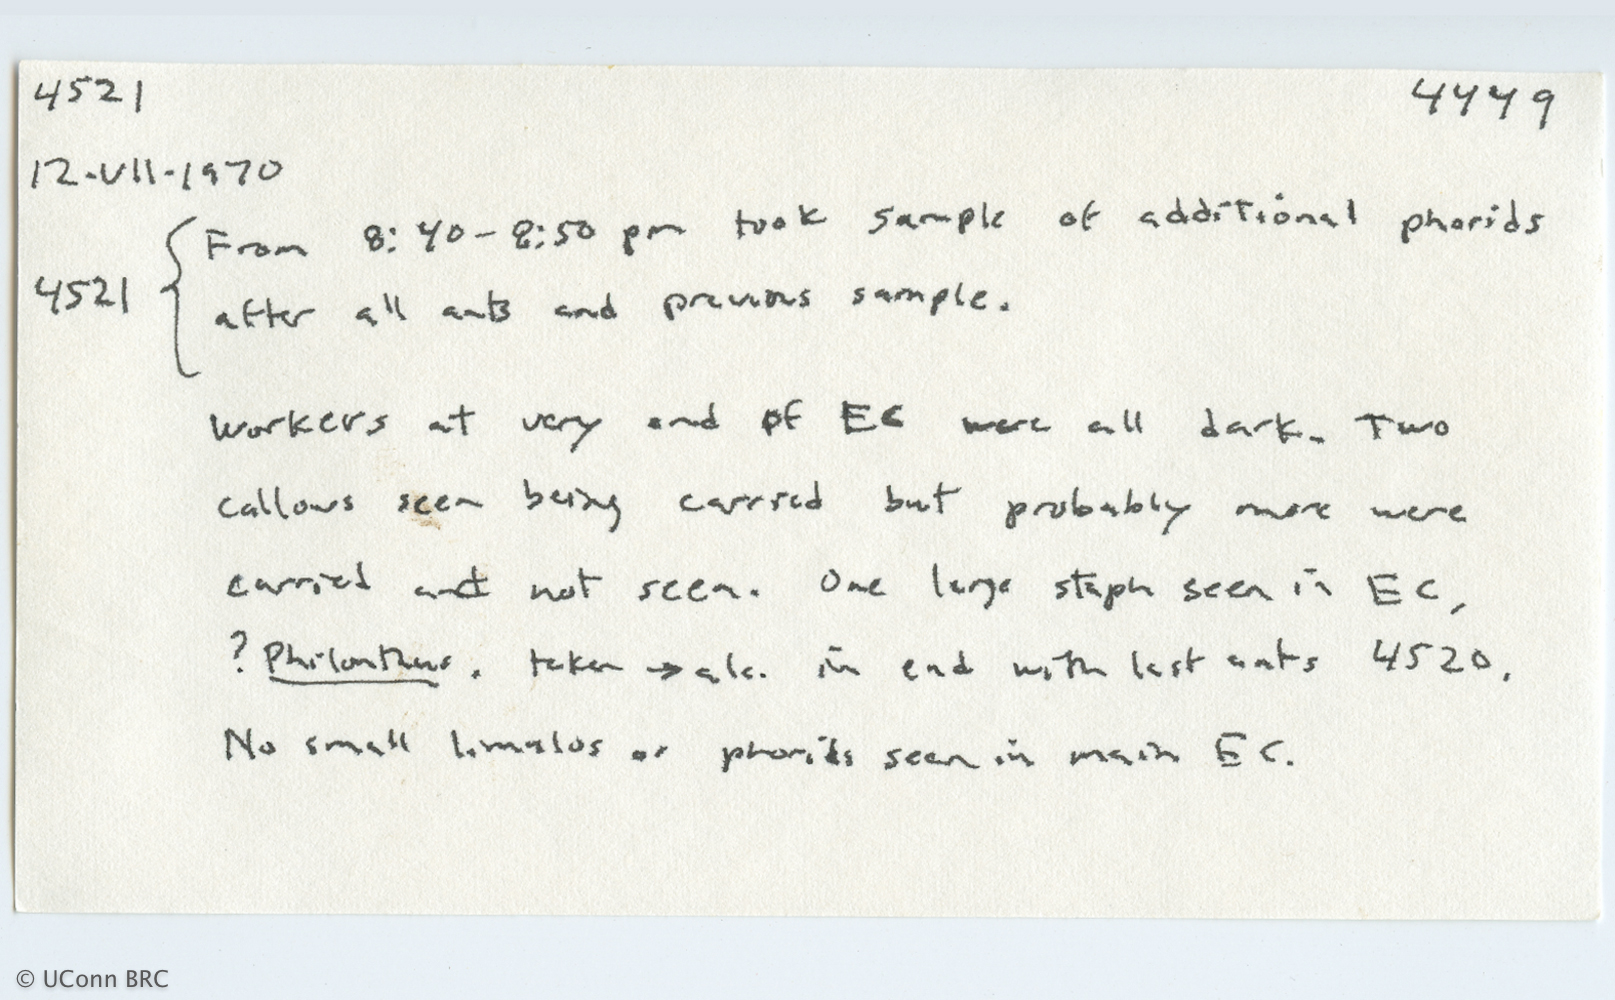 4521 4449
12-VII-1970
From 8:40-8:50 pm took sample of additional phorids
4521 after all ants and previous sample.
Workers at very end of EC were all dark. Two
callows seen being carried but probably more were
carried and not seen. One large staph seen in EC,
? Philonthus. taken → alc. in end with last ants 4520.
No small limulos or phorids seen in main EC.
© UConn BRC